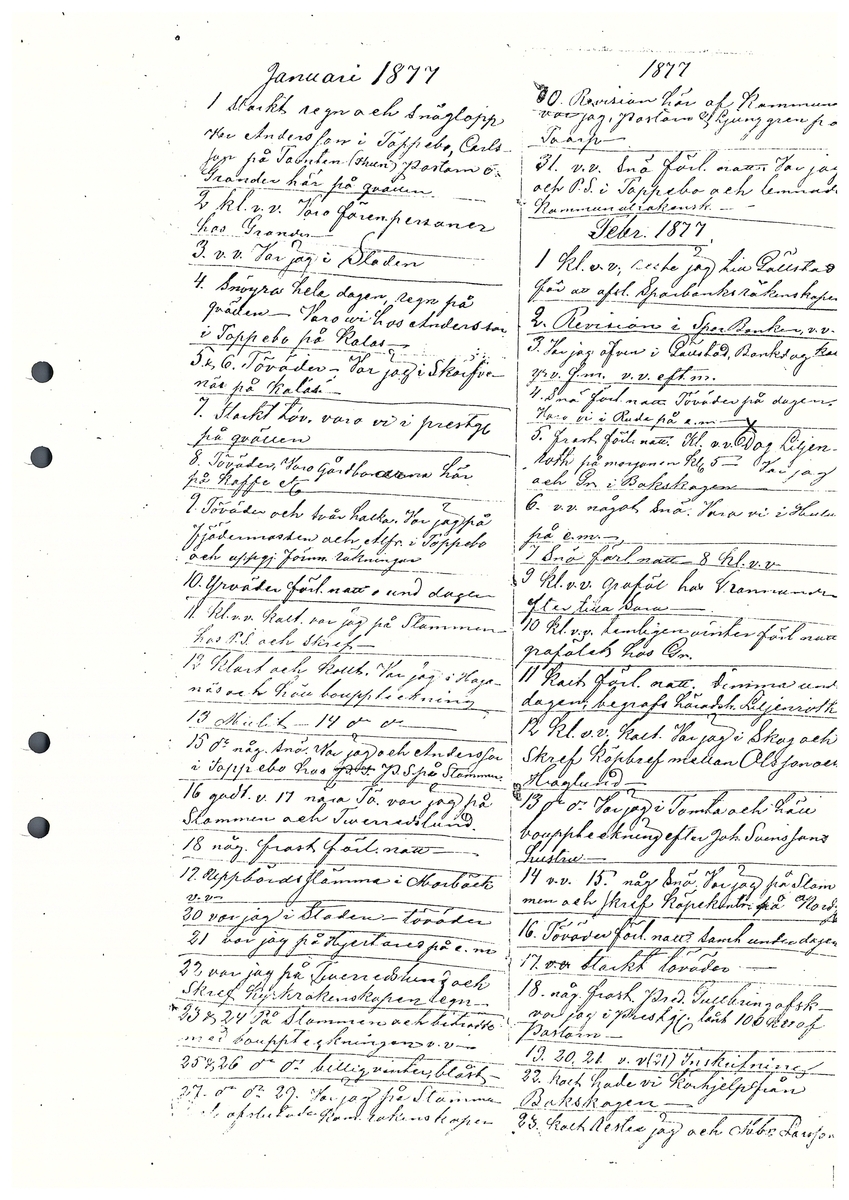 Januari 1877
1 Starkt regn och Snöglopp
Hr Andersson i Toppebo, Carls-
son på Tomten (hun) Pastorn o.
Grander här på qvällen
2 kl. v. v. Voro förenpersoner
hos Grander
3. v. v. Var jag i Staden
4. Snöyra hela dagen, regn på
qvällen — Voro wi hos Andersson
i Toppebo på Kalas —
5 & 6. Töväder — Var jag i Skörfve-
näs på kalas —
7. Starkt töv. voro vi i prestg.
på qvällen
8. Töväder, Voro Gårdboarna här
på Kaffe etc
9. Töväder och svår halka. Var jag på
Fjädermosten och Alfr. i Toppebo
och uppgj. Förm. räkningar
10. Yrväder förl. natt o und dagen
11. kl. v. v. kalt. var jag på Stommen
hos P.S. och skref —
12 Klart och kallt. Var jag i Haga-
näs och höll bouppteckning
13 Mulet — 14 do do —
15 do någ. snö. Var jag och Andersson
i Toppebo hos P.S på Stommen
16 godt. v. 17 nära Tö, var jag på
Stommen och Tweredslund.
18 någ. frost förl. natt —
19. Uppbördsstämma i Marbäck
v. v —
20 var jag i Staden — töväder
21 var jag på Hjertared på e. m
22, var jag på Tweredslund och
Skref Kyrkräkenskapen regn —
23 & 24 På Stommen och biträdde
med bouppteckningen v. v —
25 & 26 do do billig vinter, blåst —
27. do do 29. Var jag på Stomme
afslutade Kom. räkenskapen
1877
30. Revision här af Kommun
var jag, Pastorn & Ljunggren fr
Taarp —
31. v. v. Snö förl. natt. Var jag
och P.S. i Toppebo och lemnade
Kommunalräkensk. —
Febr. 1877
1 kl. v. v, reste jag till Gällstad
för att afsl. Sparbanksräkenskapen
2. Revision i SparBanken, v. v.
3. Var jag äfven i Gällstad, Bankdag
yrv. f. m. v. v. eft. m.
4. Snö förl. natt Töväder på dagen.
Voro vi i Ruda på e. m —
5. frost förl. natt. Kl. v. v. Dog Liljen-
roth på morgonen kl 5 — Var jag
och Gr. i Bokskogen —
6. v. v. något Snö. Voro vi i
på e. m. —
7 Snö förl natt — 8 kl. v. v
9 kl. v. v. graföl hos Brannander
efter lilla Sara —
10 kl. v. v. temligen vinter förl. natt
grafölet hos Gr.
11 kalt förl. natt. dimma und
dagen, begrafs häradsh. Liljenroth
12 kl. v. v. kalt. Var jag i Skog och
Skref Köpbref mellan Olsson och
Hoglund —
13 do do. Var jag i Tomta och höll
bouppteckning efter Joh. Svenssons
hustru —
14 v. v. 15. någ Snö. Var jag på Stom
men och skref Köpekontr. på
16. Töväder förl. natt. samt under dagen
17. v. v. starkt töväder —
18. någ. frost. Pred. Gullbring afsk —
var jag i prestg. lånt 100 kr af
Pastorn —
19. 20, 21 v. v (21) Inskrifning
22. kalt hade vi Körhjelp från
Bokskogen —
23. kalt Restes jag och Larsson